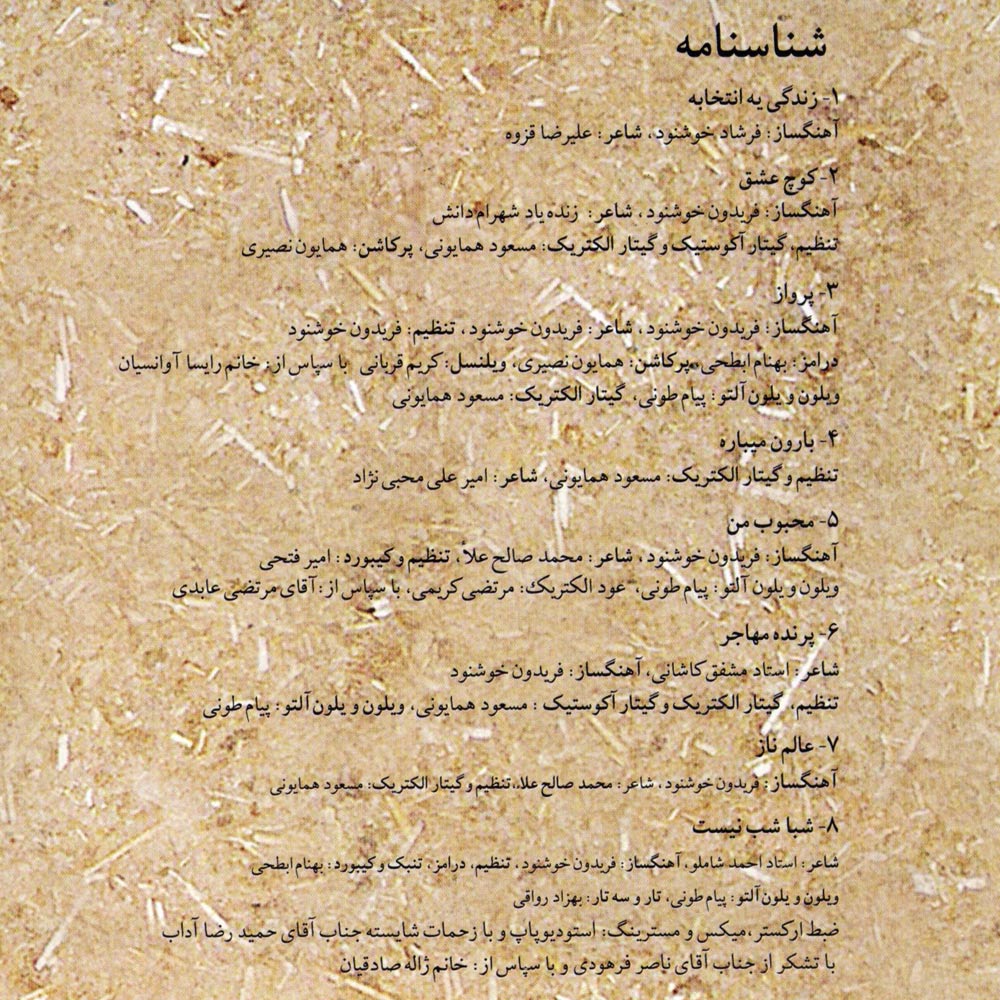 شناسنامه
۱- زندگی یه انتخابه
آهنگساز: فرشاد خوشنود، شاعر: علیرضا قزوه
۲- کوچ عشق
آهنگساز: فریدون خوشنود، شاعر: زنده یاد شهرام دانش
تنظیم، گیتار آکوستیک و گیتار الکتریک: مسعود همایونی، پرکاشن: همایون نصیری
۳- پرواز
آهنگساز: فریدون خوشنود، شاعر: فریدون خوشنود، تنظیم: فریدون خوشنود
درامز: بهنام ابطحی، پرکاشن: همایون نصیری، ویلنسل: کریم قربانی با سپاس از: خانم رایسا آوانسیان
ویلون و یلون آلتو: پیام طونی، گیتار الکتریک: مسعود همایونی
۴- بارون میباره
تنظیم و گیتار الکتریک: مسعود همایونی، شاعر: امیر علی محبی نژاد
۵- محبوب من
آهنگساز: فریدون خوشنود، شاعر: محمد صالح علاً، تنظیم و کیبورد: امیر فتحی
ویلون و یلون آلتو: پیام طونی، عود الکتریک: مرتضی کریمی، با سپاس از: آقای مرتضی عابدی
۶- پرنده مهاجر
شاعر: استاد مشفق کاشانی، آهنگساز: فریدون خوشنود
تنظیم، گیتار الکتریک و گیتار آکوستیک: مسعود همایونی، ویلون و یلون آلتو: پیام طونی
۷- عالم ناز
آهنگساز: فریدون خوشنود، شاعر: محمد صالح علا،تنظیم و گیتار الکتریک: مسعود همایونی
۸- شبا شب نیست
شاعر: استاد احمد شاملو، آهنگساز: فریدون خوشنود، تنظیم، درامز، تنبک و کیبورد: بهنام ابطحی
ویلون و یلون آلتو: پیام طونی، تار و سه تار: بهزاد رواقی
ضبط ارکستر ،میکس و مسترینگ: استودیو پاپ و با زحمات شایسته جناب آقای حمید رضا آداب
با تشکر از جناب آقای ناصر فرهودی و با سپاس از: خانم ژاله صادقیان